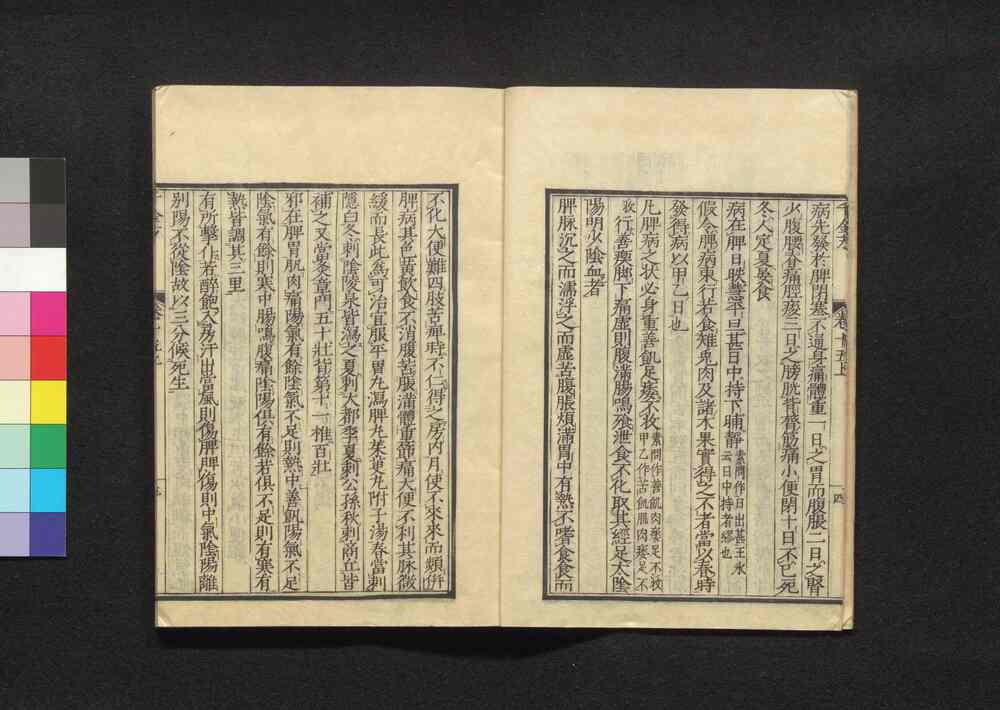 病先發於脾閉塞不通身痛體重一日之胃而腹脹二日之腎
少腹腰脊痛脛痠三日之膀胱背膂筋痛小便閉十日不已死
冬人定夏晏食
病在脾日昳慧平旦甚日中持下晡靜素問作日出甚王氷云日中持者繆也
假令脾病東行若食雉兔肉及諸木果實得之不者當以春時
發得病以甲乙日也
凡脾病之状必身重善飢足痿不收素問作善飢肉痿足不收甲乙作苦飢肌肉痿足不
收行善瘈脚下痛虛則腹滿腸鳴飱泄食不化取其經足太陰
陽明少陰血者
脾脉沉之而濡浮之而虛苦腹脹煩滿胃中有熱不嗜食食而
不化大便難四肢苦痺時不仁得之房内月使不來來而頻併
脾病其色黃飲食不消腹苦脹滿體重節痛大便不利其脉微
緩而長此為可治宜服平胃丸瀉脾丸茱萸丸附子湯春當刺
隱白冬刺陰陵泉皆瀉之夏刺大都季夏刺公孫秋刺商丘皆
補之又當灸章門五十壯背第十一椎百壯
邪在脾胃肌肉痛陽氣有餘陰氣不足則熱中善飢陽氣不足
陰氣有餘則寒中腸鳴腹痛陰陽俱有餘若俱不足則有寒有
熱皆調其三里
有所擊仆若醉飽入房汗出當風則傷脾脾傷則中氣陰陽離
别陽不從陰故以三分候死生